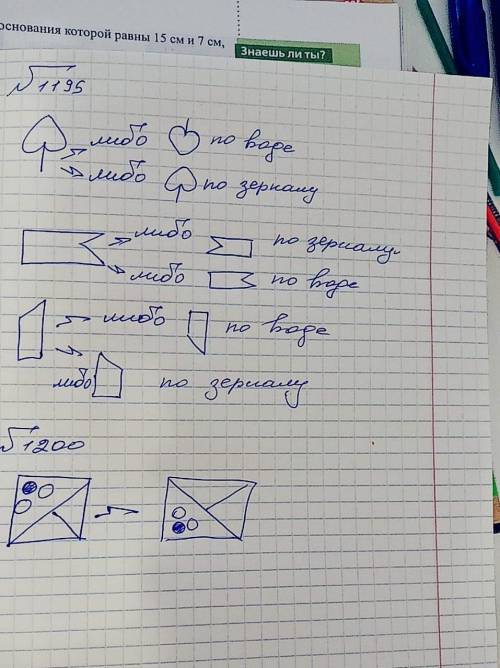 основания которой равны 15 см и 7 см,
Знаешь ли ты?
√1195
либо по воде
либо по зеркалу
либо по зеркалу.
либо по воде
либо по воде
либо по зеркалу
√1200